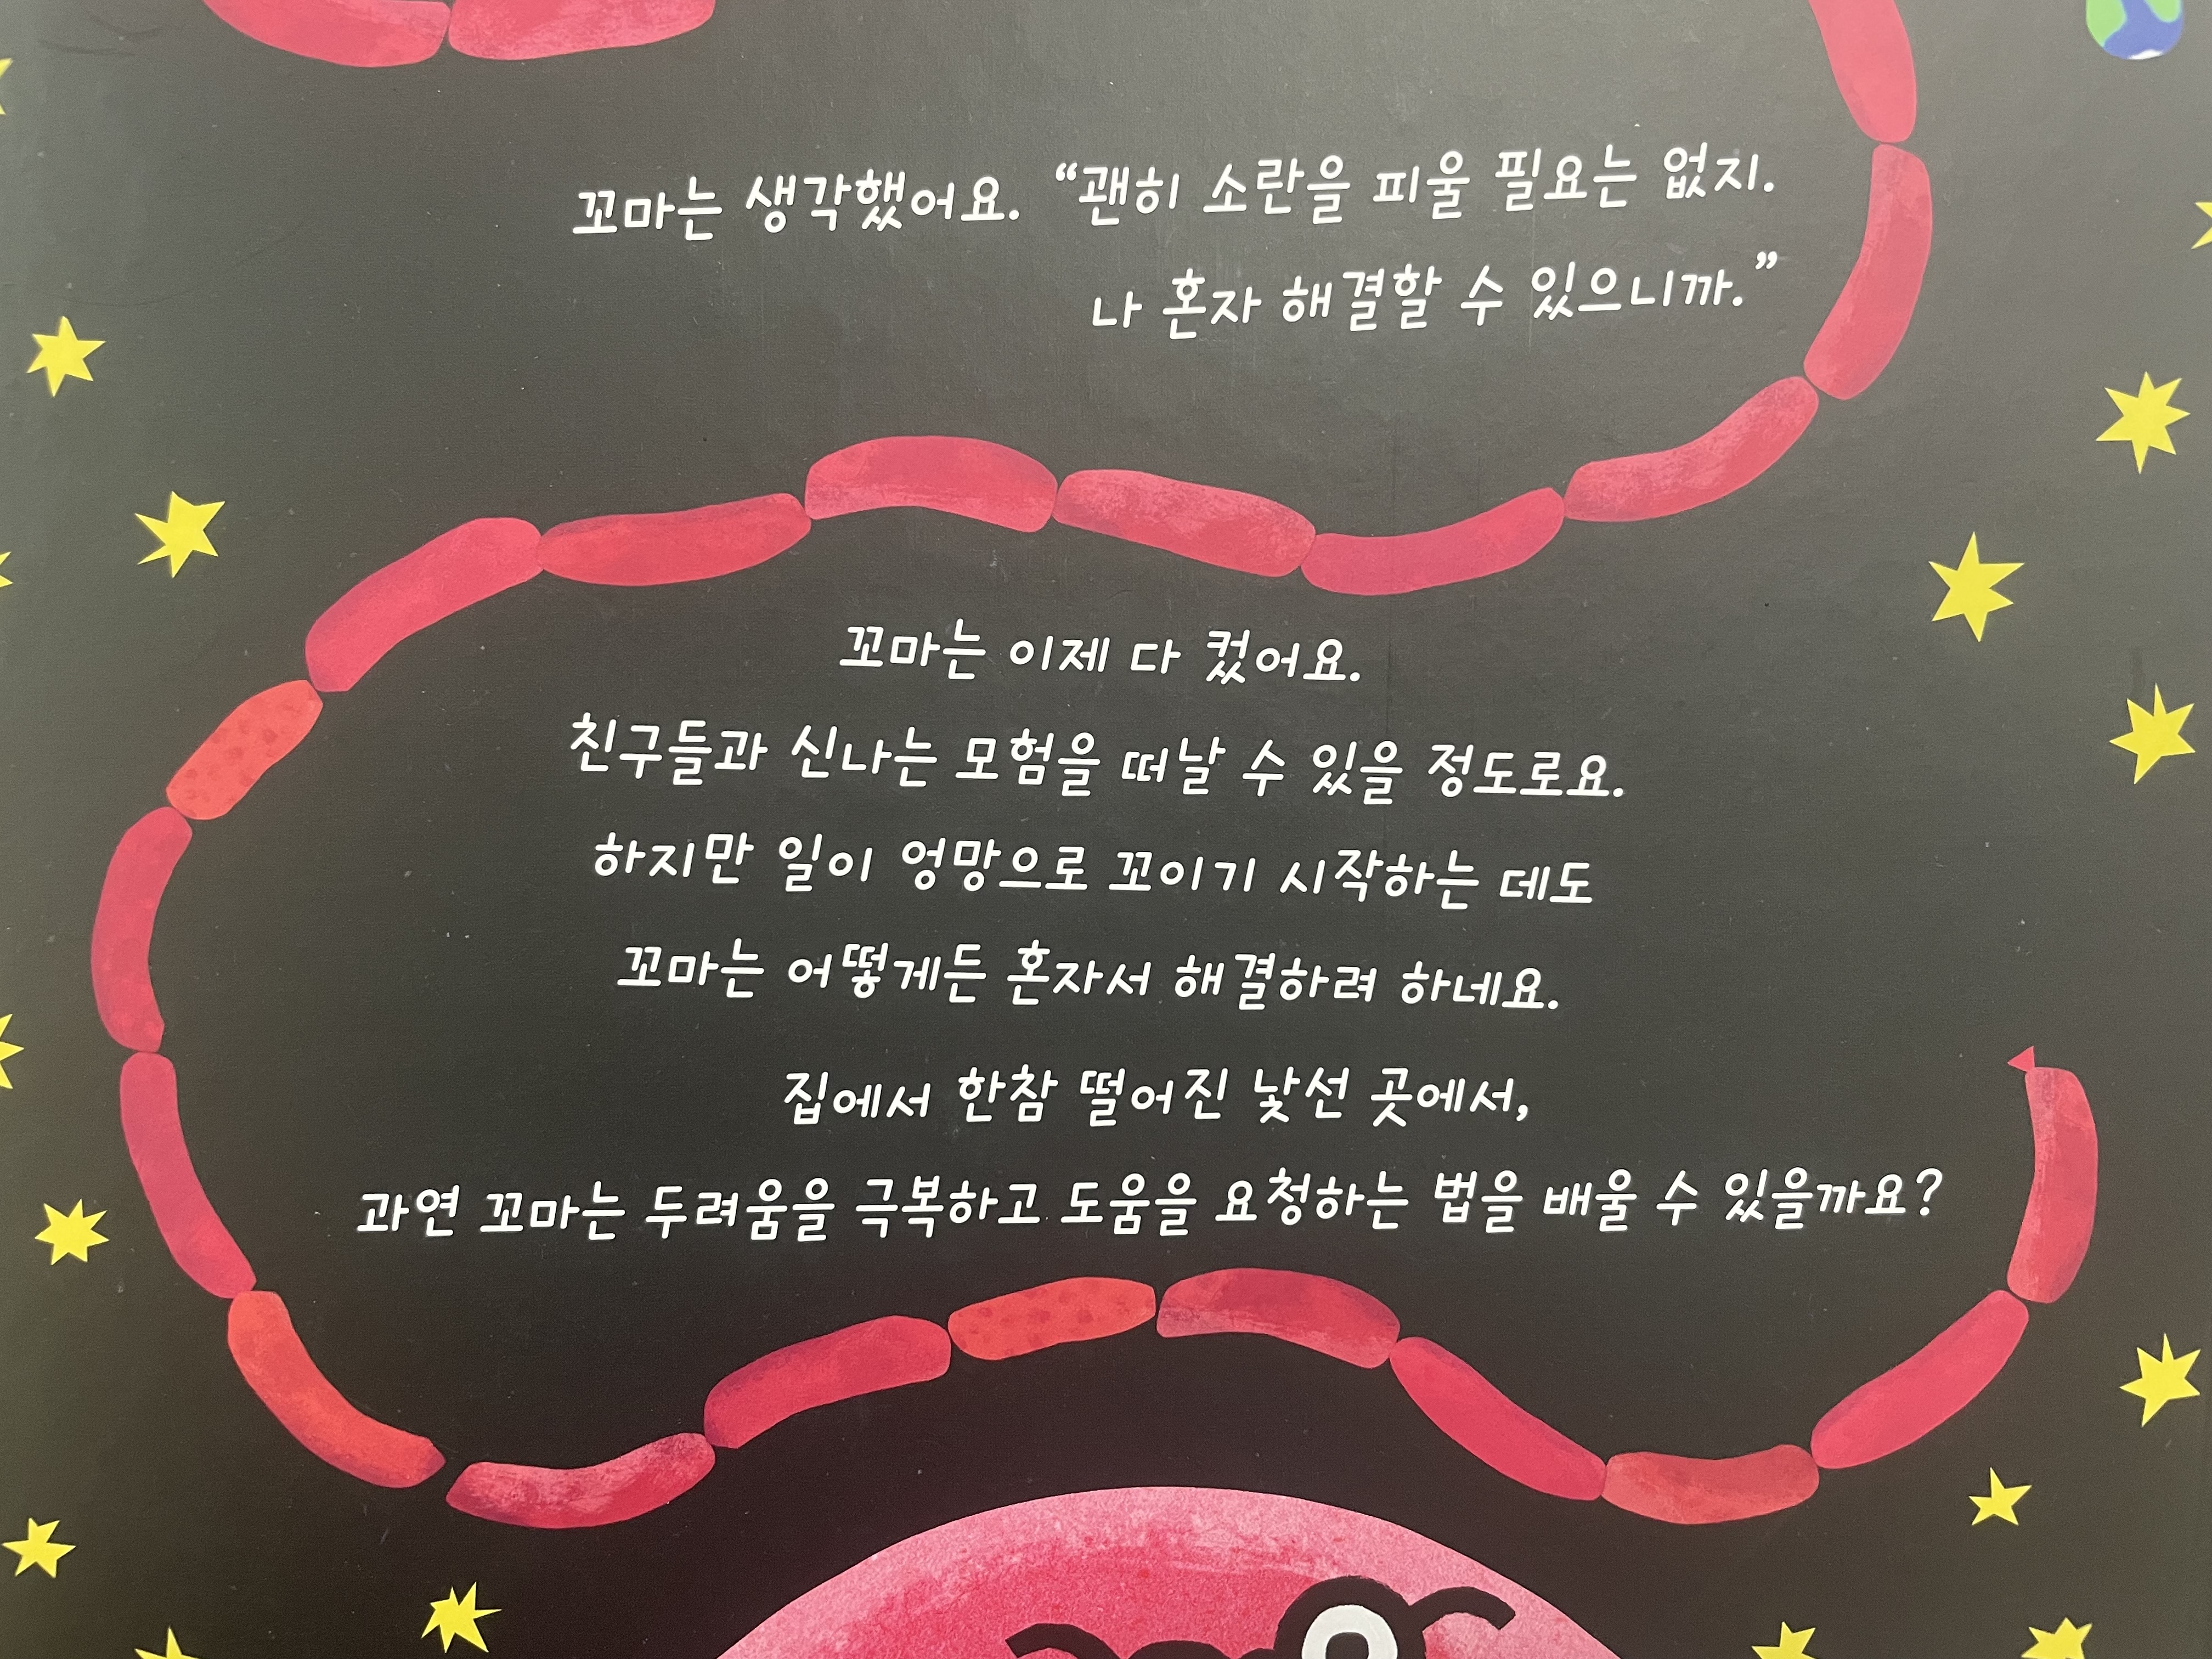 꼬마는 생각했어요. “괜히 소란을 피울 필요는 없지.
나 혼자 해결할 수 있으니까.”
꼬마는 이제 다 컸어요.
친구들과 신나는 모험을 떠날 수 있을 정도로요.
하지만 일이 엉망으로 꼬이기 시작하는 데도
꼬마는 어떻게든 혼자서 해결하려 하네요.
집에서 한참 떨어진 낯선 곳에서,
과연 꼬마는 두려움을 극복하고 도움을 요청하는 법을 배울 수 있을까요?